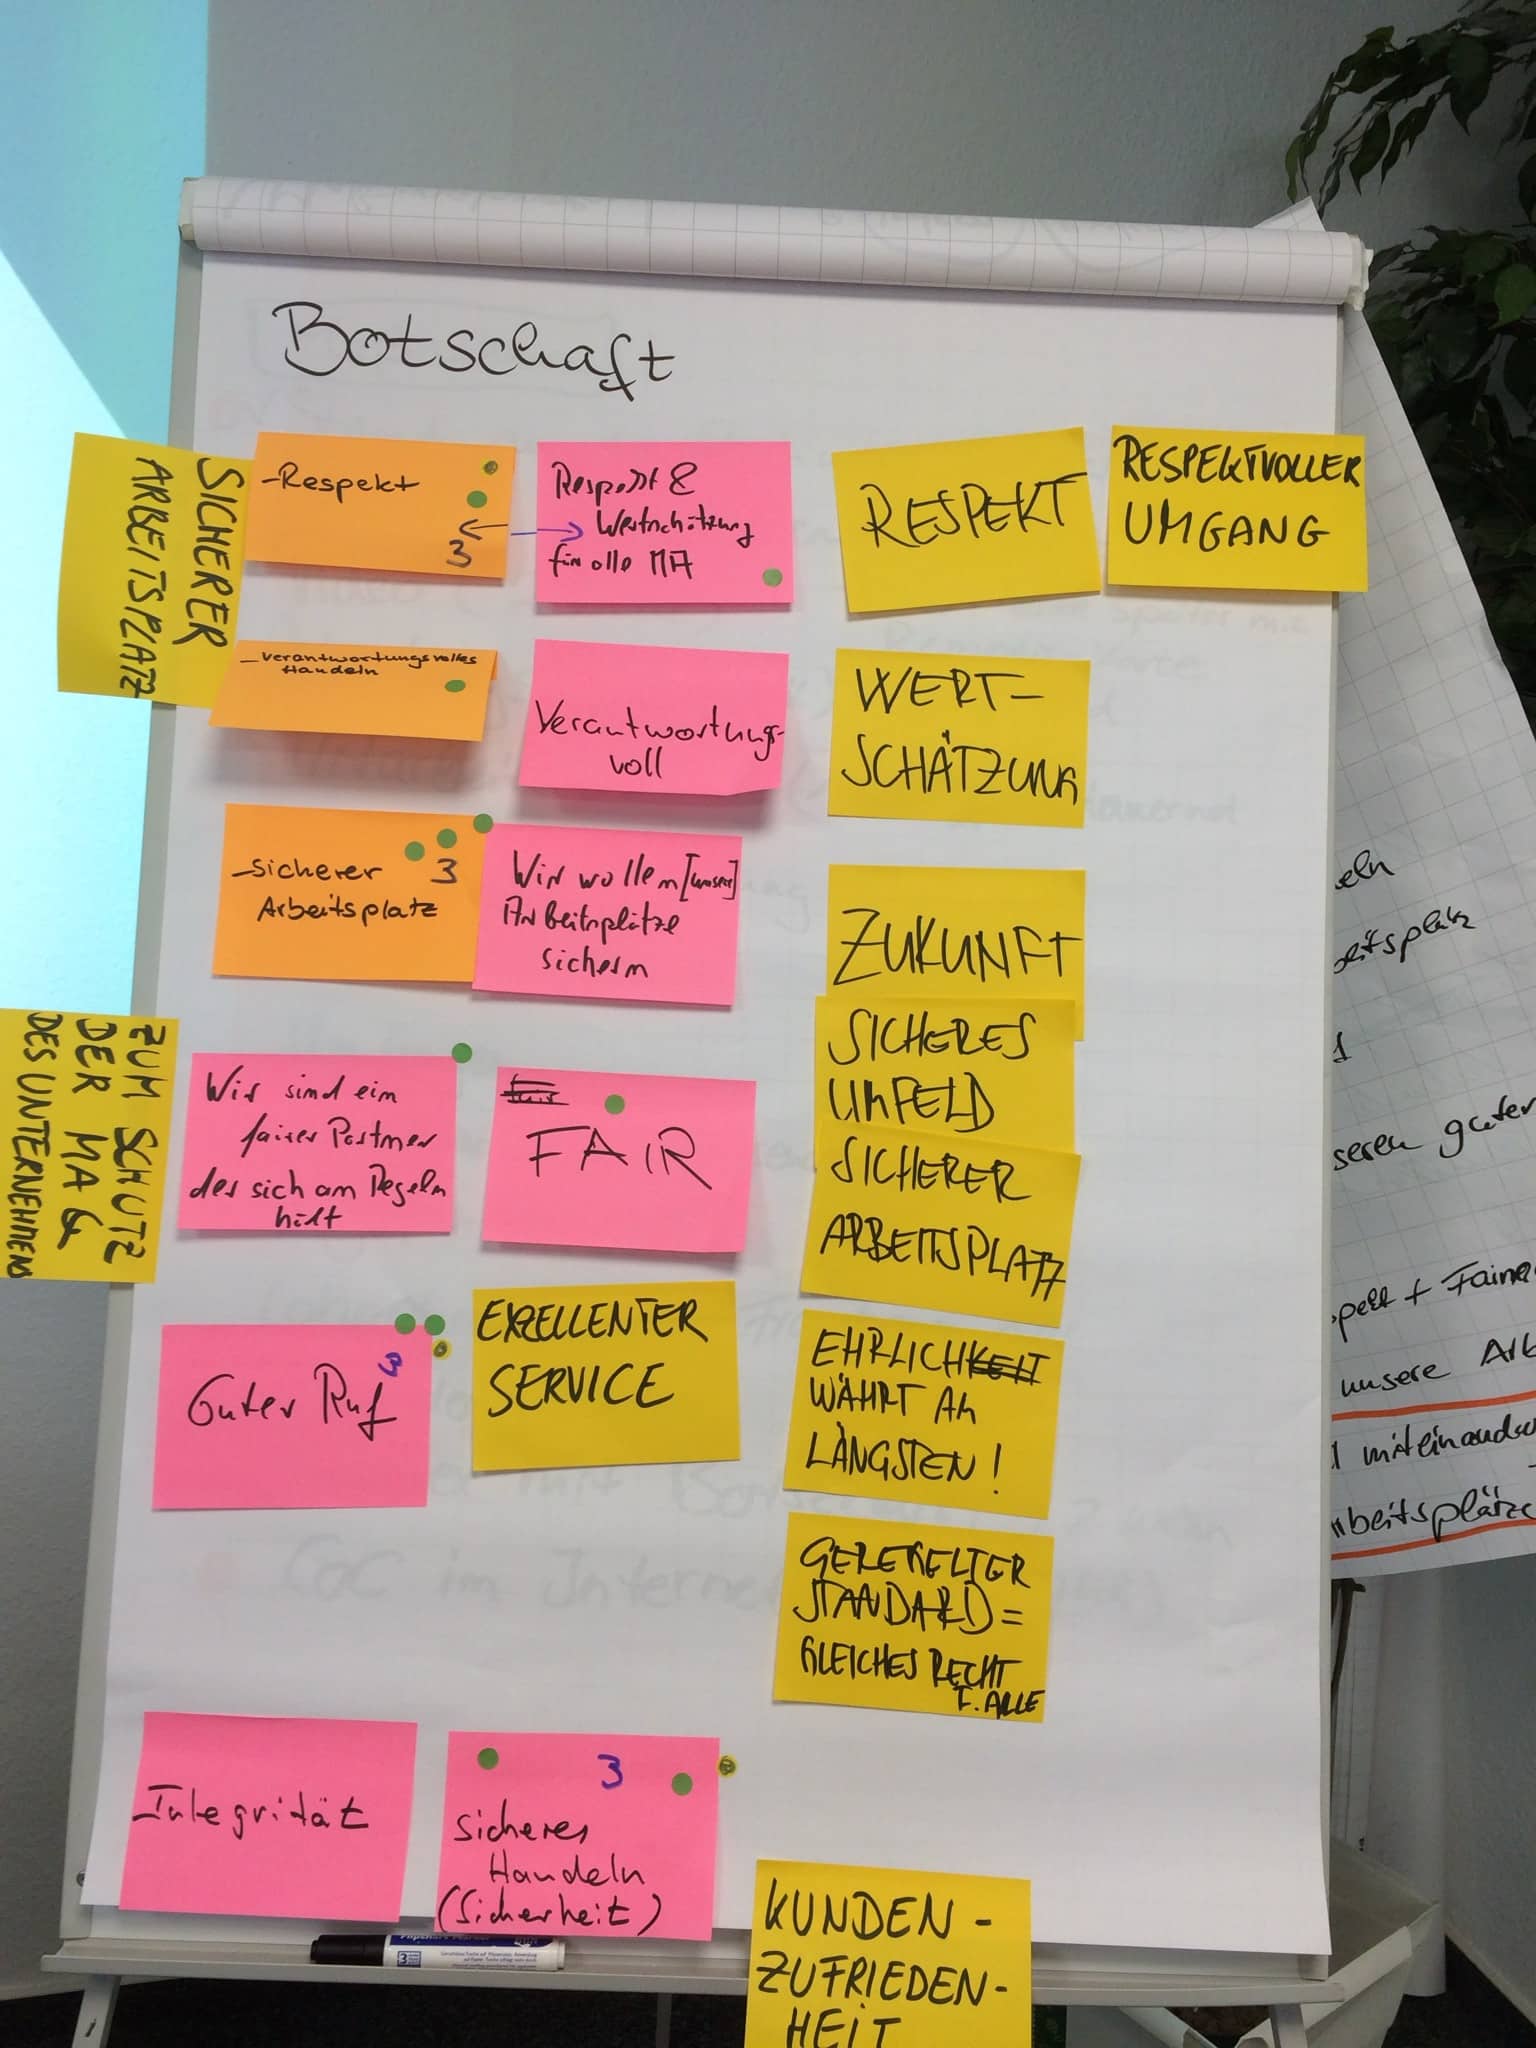 Botschaft
SICHERER
ARBEITSPLATZ
-Respekt
3
Respekt &
Wertschätzung
für alle MA
RESPEKT
RESPEKTVOLLER
UMGANG
-verantwortungsvolles
Handeln
Verantwortungs-
voll
WERT-
SCHÄTZUNG
-sicherer
3
Arbeitsplatz
Wir wollen [unsere]
Arbeitsplätze
sichern
ZUKUNFT
SICHERES
UMFELD
SICHERER
ARBEITSPLATZ
ZUM SCHUTZ
DER MA &
DES UNTERNEHMENS
Wir sind ein
fairer Partner
der sich an Regeln
hält
fair
FAIR
Guter Ruf
3
EXZELLENTER
SERVICE
EHRLICHKEIT
WÄHRT AM
LÄNGSTEN!
GEREGELTER
STANDARD =
GLEICHES RECHT
F. ALLE
Integrität
3
sicheres
Handeln
(Sicherheit)
KUNDEN-
ZUFRIEDEN-
HEIT
CoC im
unsere
miteinander